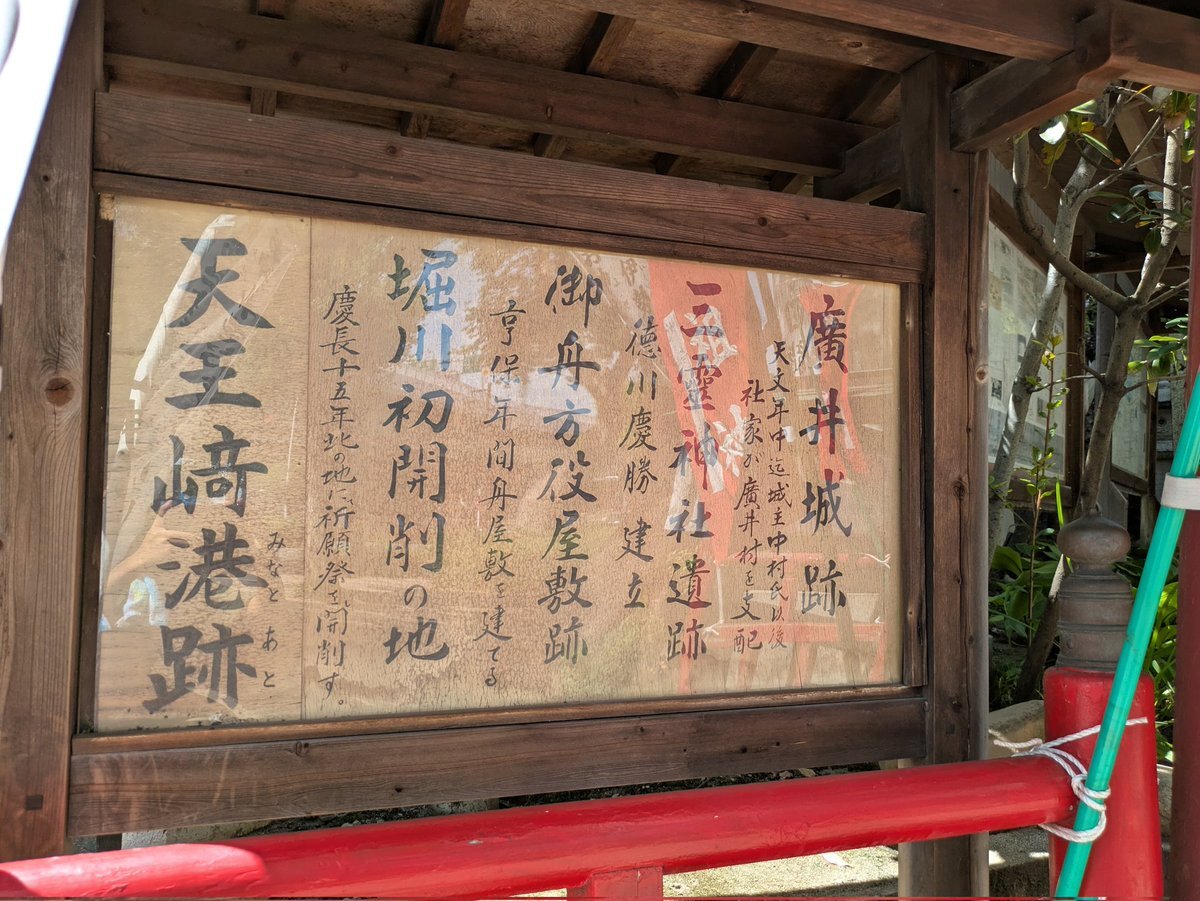 廣井城跡
天文年中迄城主中村氏以後
社家が廣井村を支配
三靈神社遺跡
徳川慶勝 建立
御舟方役屋敷跡
亨保年間舟屋敷を建てる
堀川初開削の地
慶長十五年北の地に祈願祭を開削す。
天王﨑港跡
みなと あと